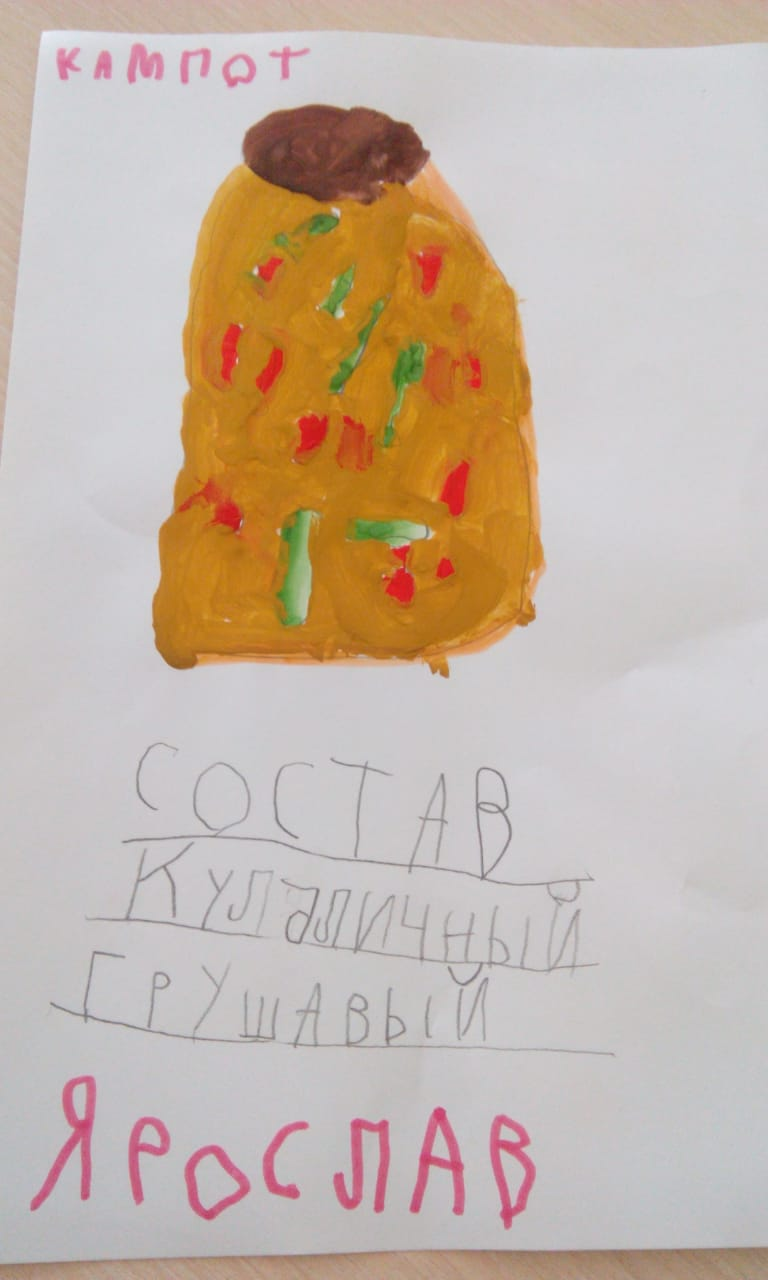 КАМПОТ
СОСТАВ
КУЛАЛИЧНЫЙ
ГРУШАВЫЙ
ЯРОСЛАВ